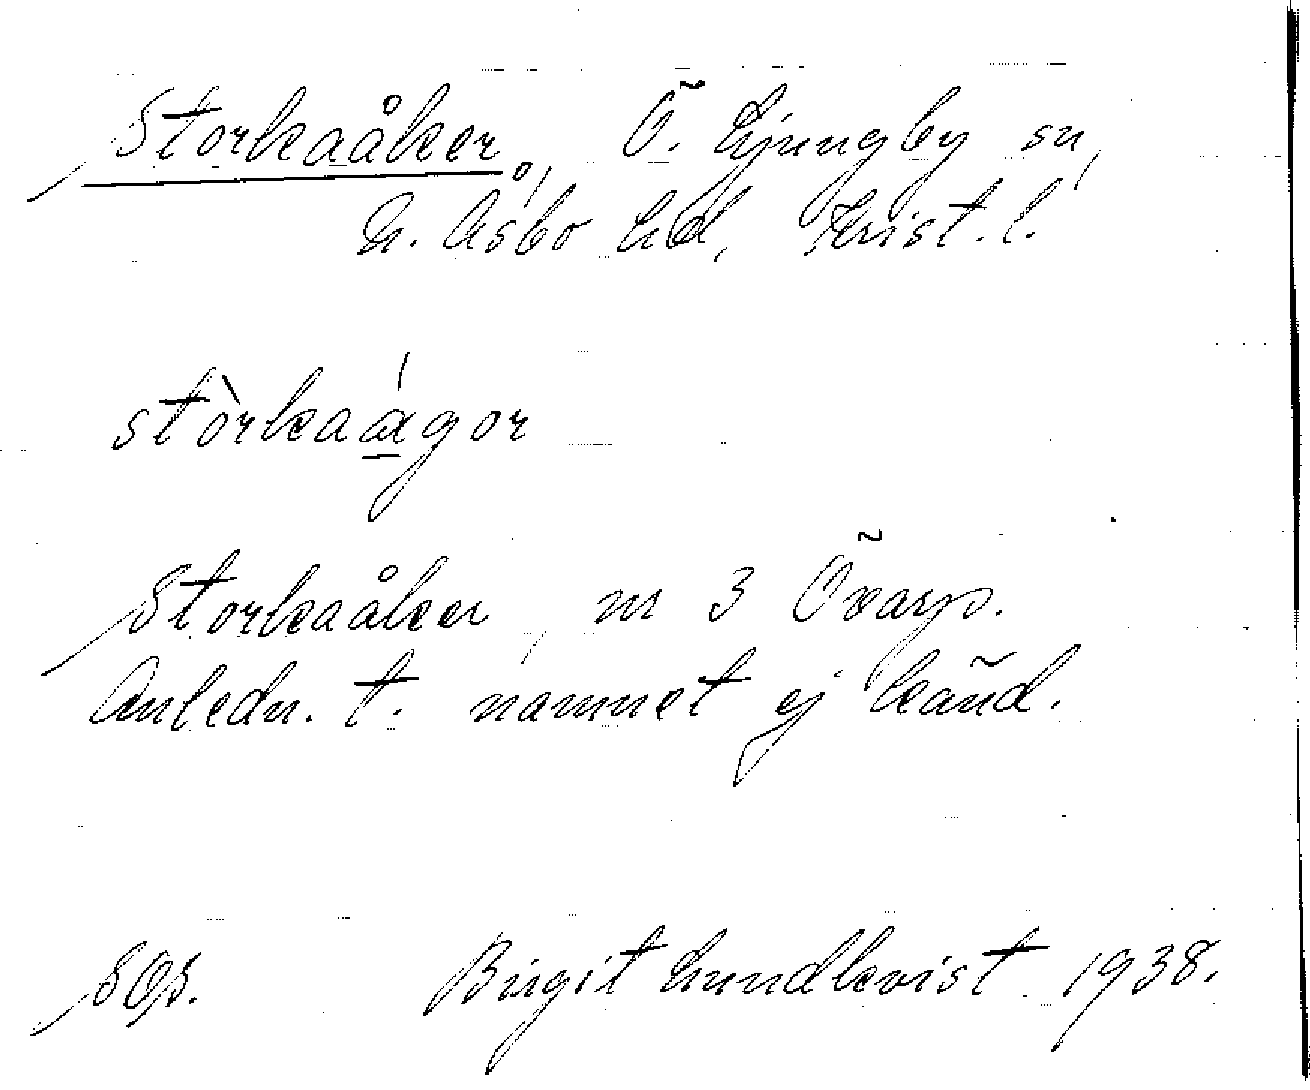 Storkaåker, Ö. Ljungby sn,
N. Åsbo hd, Krist. l.
stòrkaágor
Storkaåker, nr 3 Öxarp.
Anledn. t. namnet ej känd.
Birgit Lundkvist 1938.